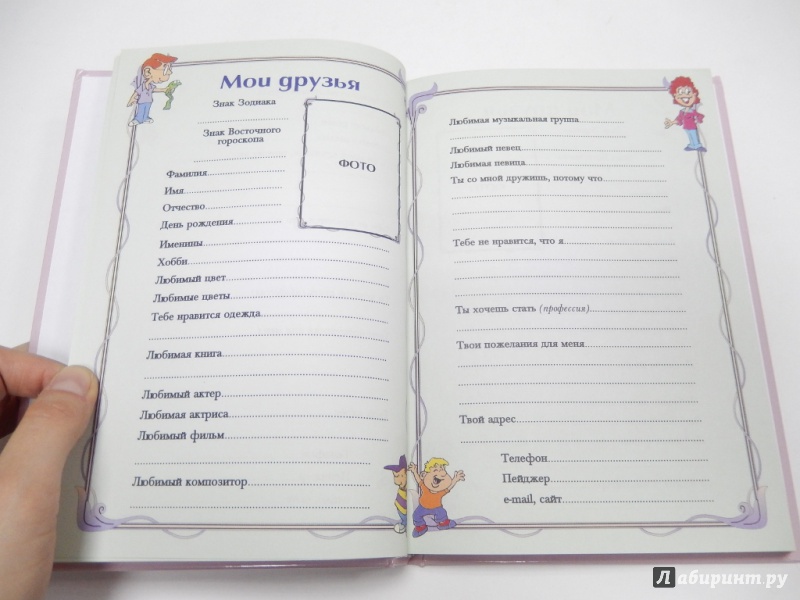 Мои друзья
Знак Зодиака
Знак Восточного
гороскопа
ФОТО
Фамилия
Имя
Отчество
День рождения
Именины
Хобби
Любимый цвет
Любимые цветы
Тебе нравится одежда
Любимая книга
Любимый актер
Любимая актриса
Любимый фильм
Любимый композитор
Любимая музыкальная группа
Любимый певец
Любимая певица
Ты со мной дружишь, потому что
Тебе не нравится, что я
Ты хочешь стать (профессия)
Твои пожелания для меня
Твой адрес
Телефон
Пейджер
e-mail, сайт
Лабиринт.ру